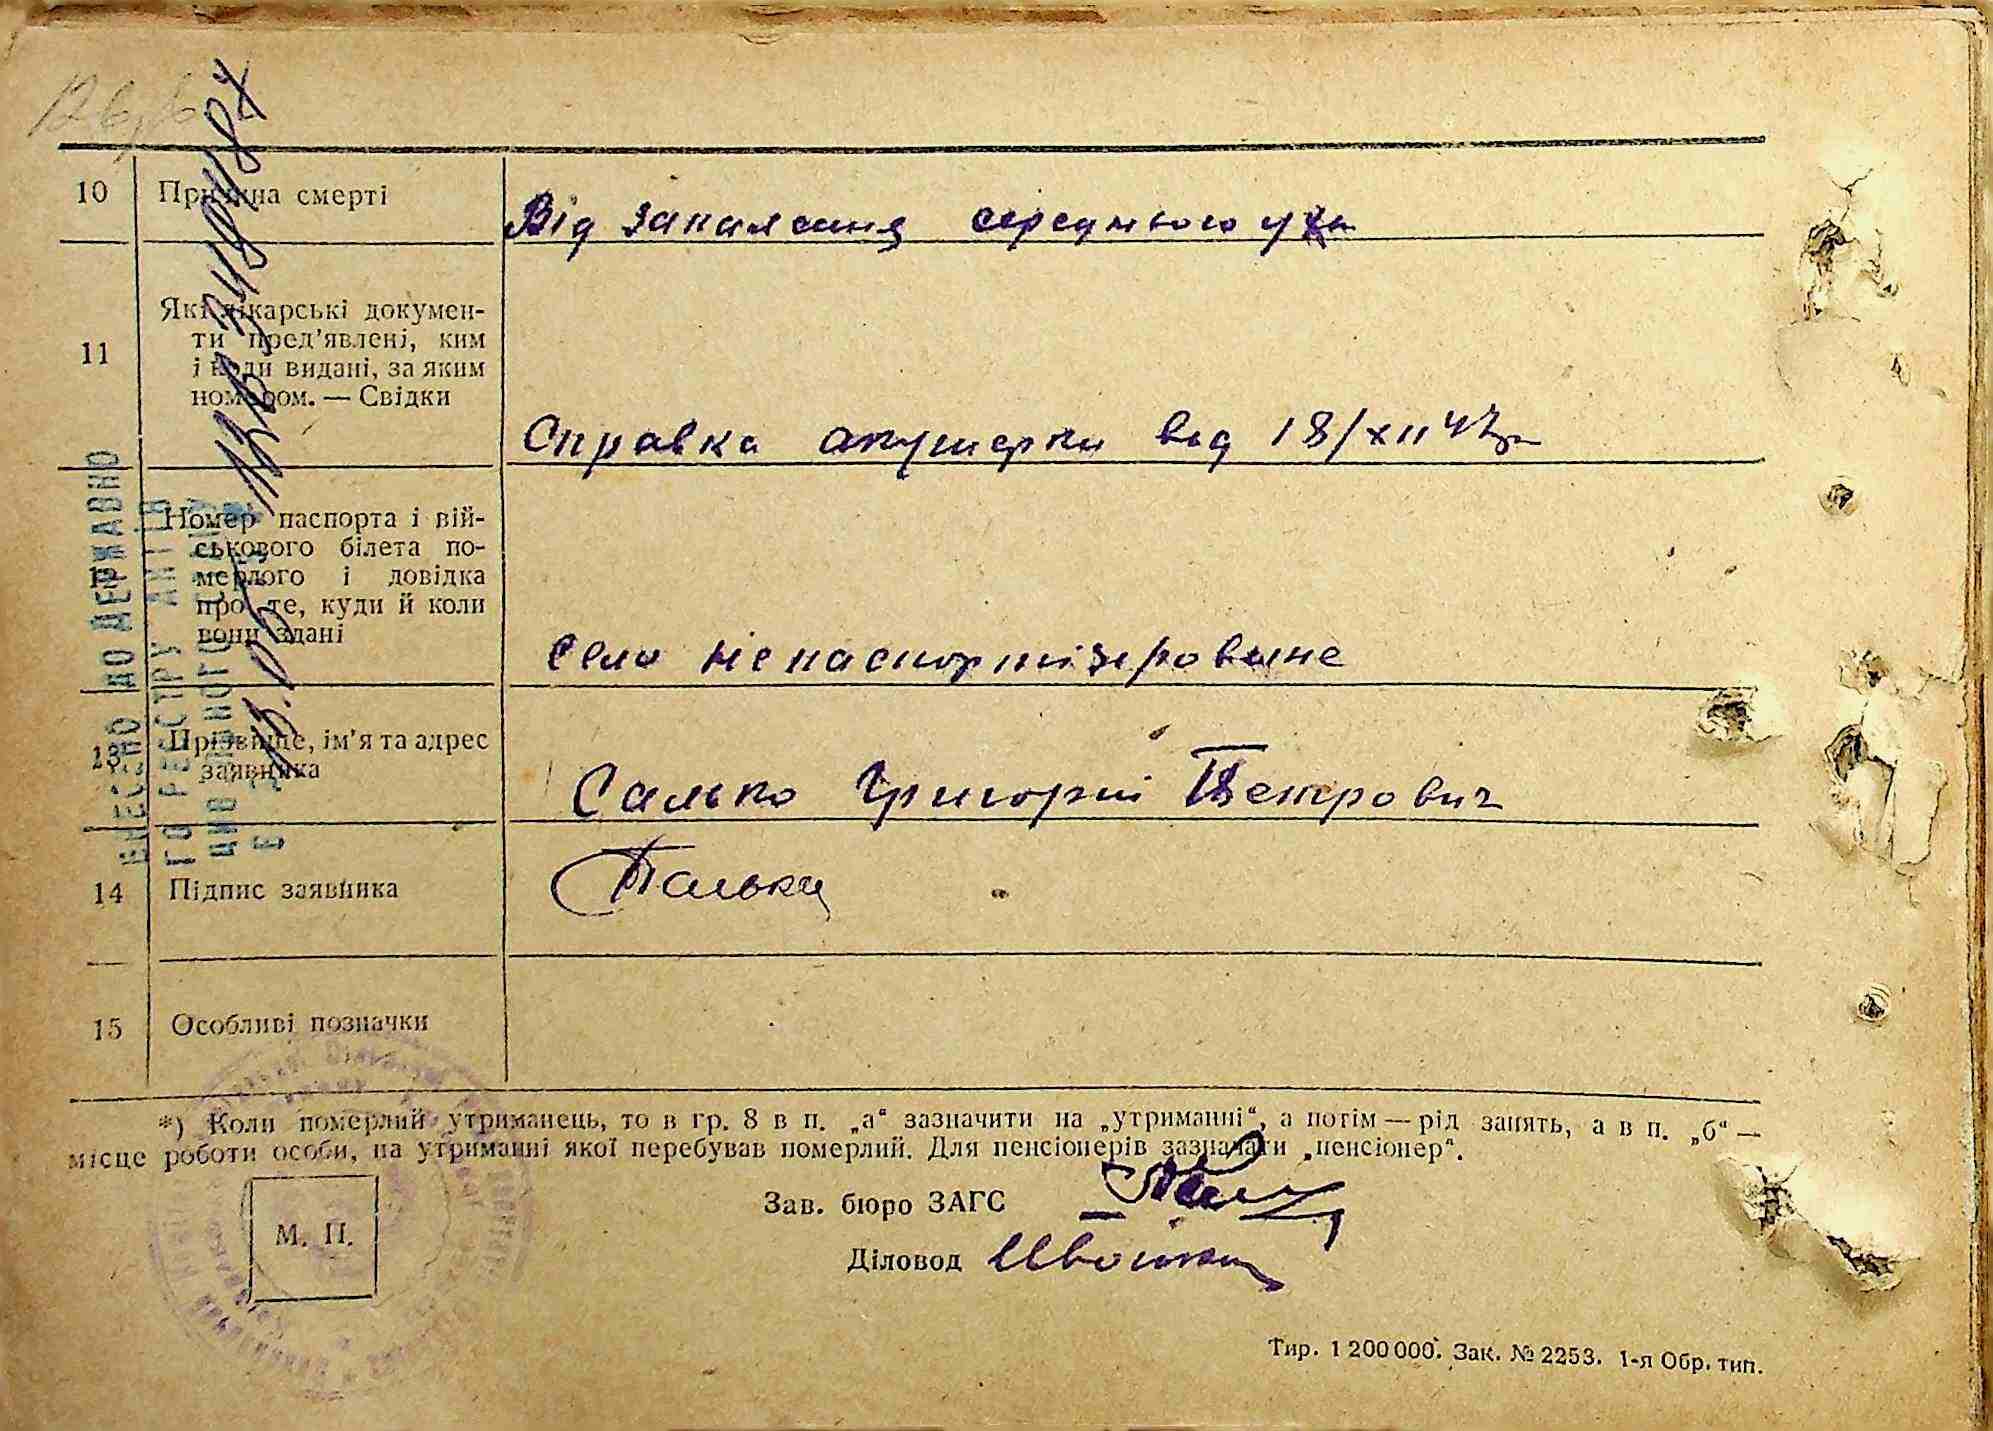 10 Причина смерті Від запалення середнього уха
11 Які лікарські докумен-
ти пред'явлені, ким
і коли видані, за яким
номером. — Свідки
Справка акушерки вод 18/XII 47р
Номер паспорта і вій-
ськового білета по-
мерлого і довідка
про те, куди й коли
вони здані
село непаспортізероване
13 Прізвище, ім'я та адрес
заявника
Салько Григорий Петрович
14 Підпис заявника
15 Особливі позначки
*) Коли померлий утриманець, то в гр. 8 в п. „а“ зазначити на „утриманні“, а потім — рід занять, а в п. „б“ —
місце роботи особи, на утриманні якої перебував померлий. Для пенсіонерів зазначати „пенсіонер“.
Зав. бюро ЗАГС
Діловод
М. П.
Тир. 1 200 000. Зак. № 2253. 1-я Обр. тип.
ВНЕСЕНО ДО ДЕРЖАВНО
ГО РЕЄСТРУ АКТІВ
ЦИВІЛЬНОГО СТАНУ